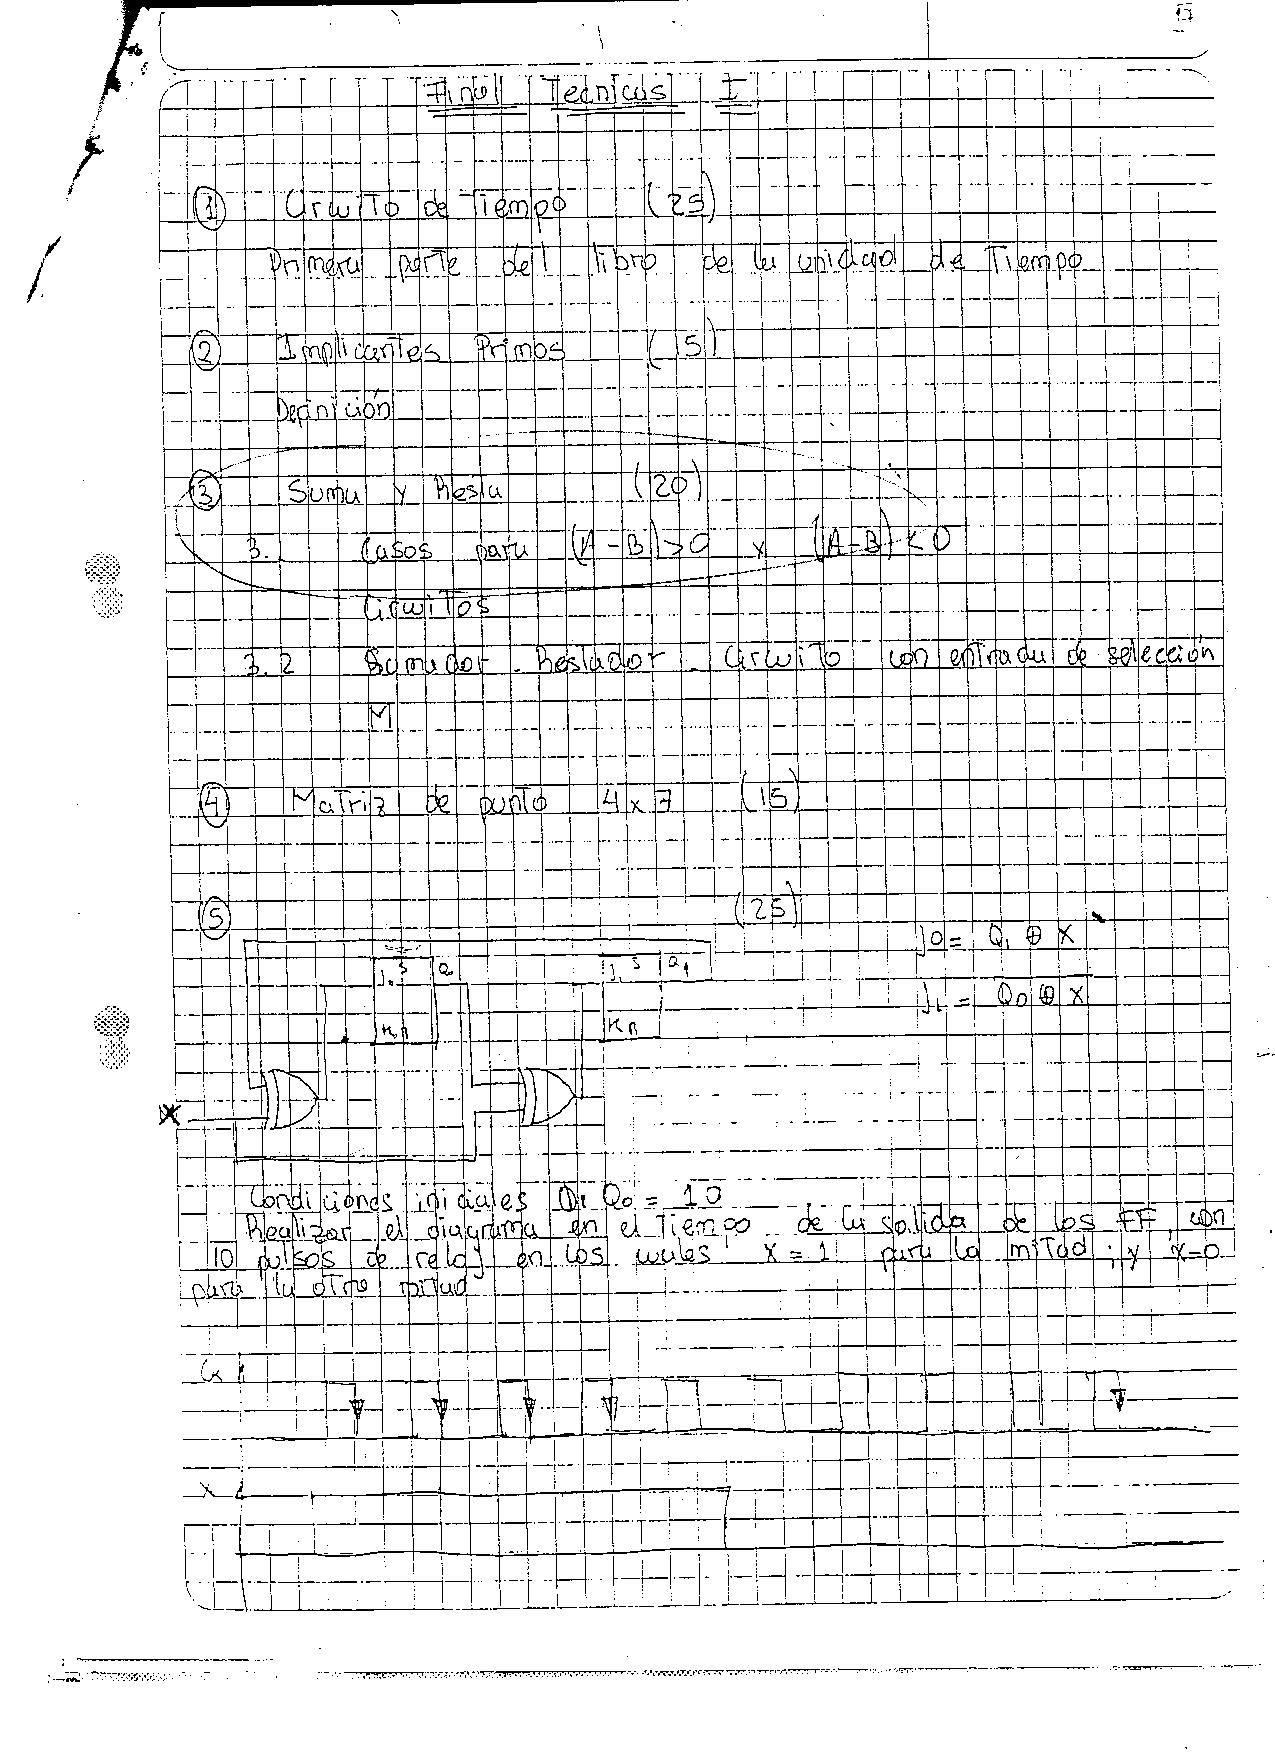 Final Tecnicas I
① Circuito de Tiempo (25)
Primera parte del libro de la unidad de Tiempo
② Implicantes Primos (15)
Definición
③ Suma y Resta (20)
3.1 Casos para (A-B)>0 y (A-B)<0
Circuitos
3.2 Sumador - Restador - Circuito con entrada de selección
M
④ Matriz de punto 4x7 (15)
⑤ (25)
J0 = Q1 ⊕ X
J1 = Q0 ⊕ X
J0 S Q
K R
J1 S Q1
K R
X
Condiciones iniciales Q1 Q0 = 10
Realizar el diagrama en el Tiempo de la salida de los FF, con
10 pulsos de reloj en los cuales X = 1 para la mitad; y X=0
para la otra mitad
Ck
X